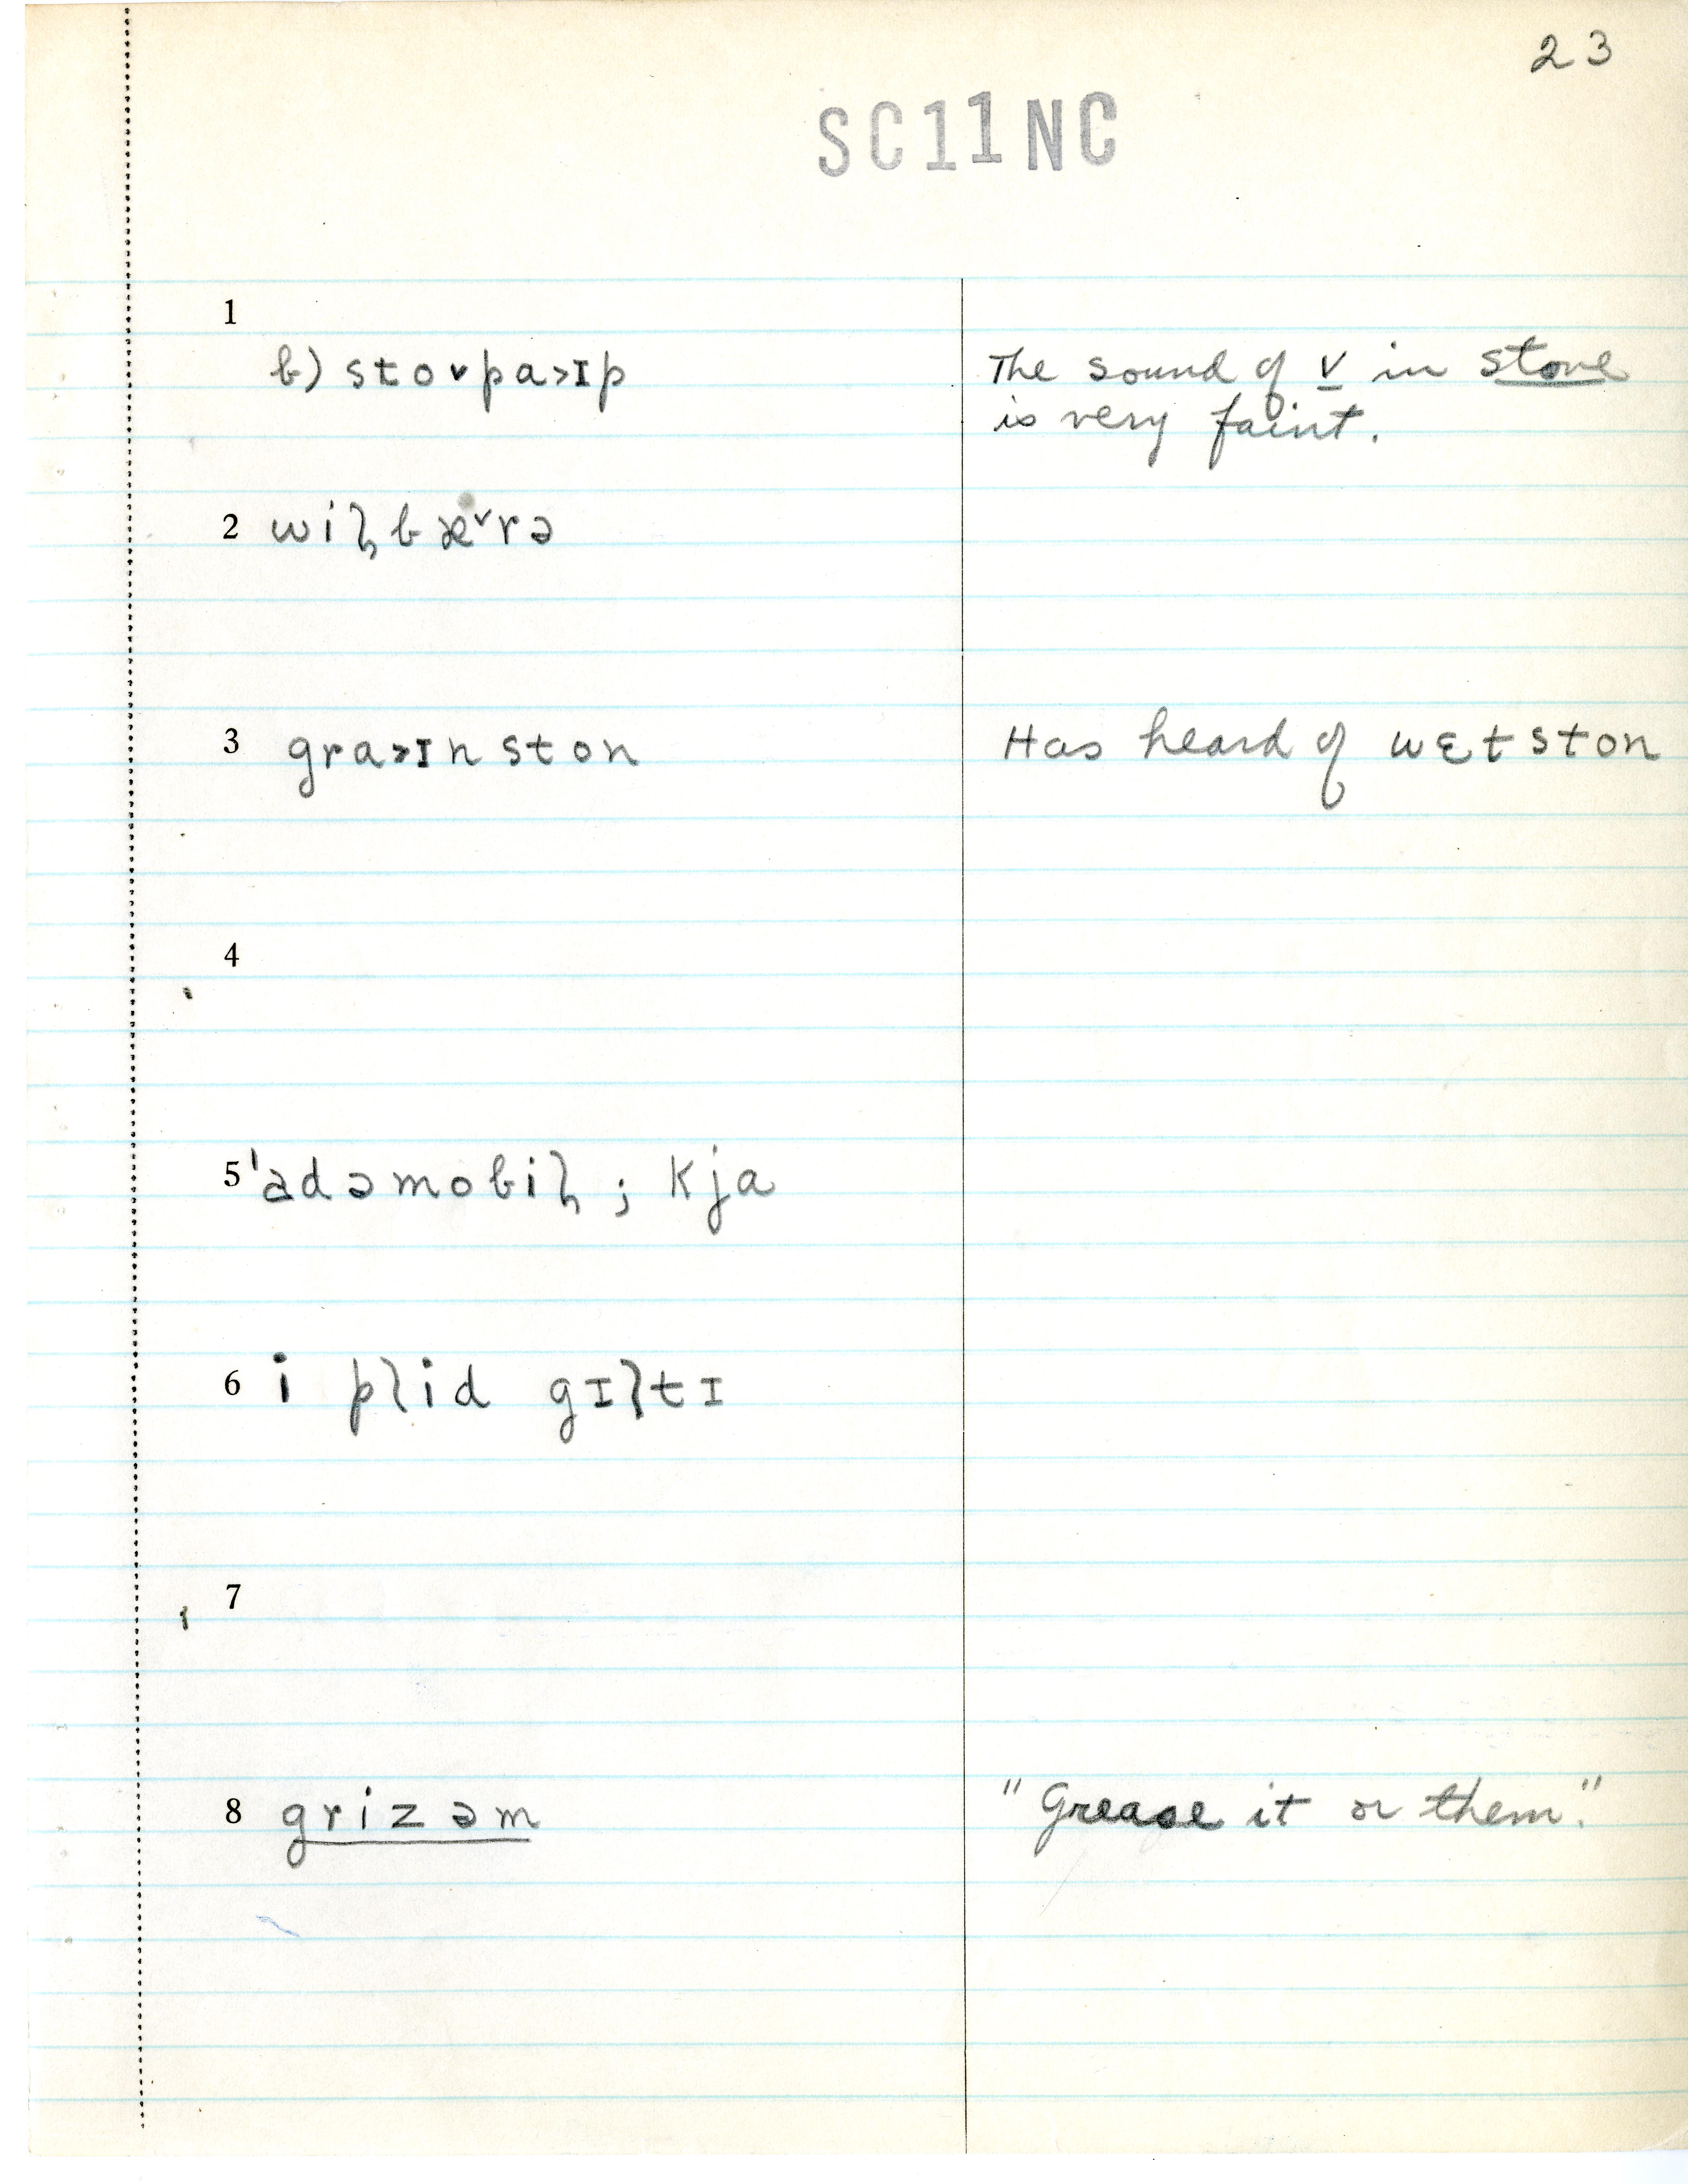 23
SC11NC
1
b) stovpa>ɪp
The sound of v in stove
is very faint.
2 wiɫbæ˅rə
3 gra>ɪnston
Has heard of wɛtston
4
5 'adəmobiɫ; kja
6 i plid gɪltɪ
7
8 grizəm
"Grease it or them."